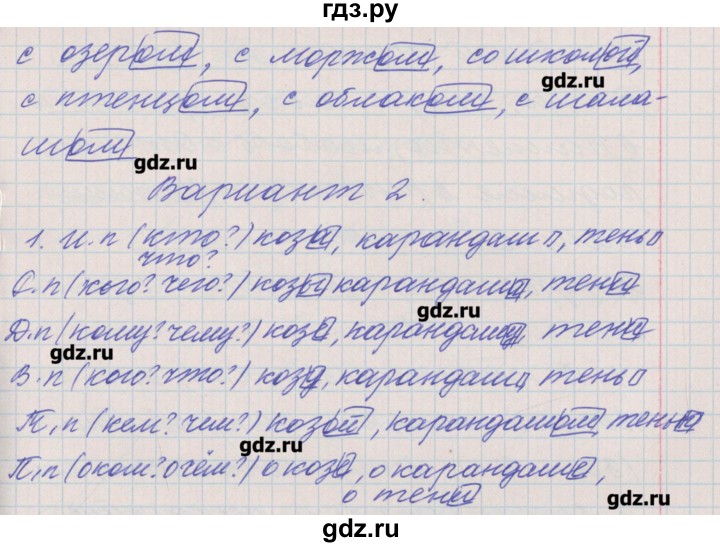 гдз.ру
с озером, с моржом, со школой,
gdz.ru
с птенцом, с облаком, с шала-
шом
gdz.ru
Вариант 2.
1. И.п (кто? коза, карандаш, тень
что?)
Р.п (кого? чего?) козы карандаша, тени
gdz.ru
Д.п (кому? чему?) козе, карандашу, тени
gdz.ru
В.п (кого? что?) козу, карандаш тень
Т.п (кем? чем?) козой, карандашом, тенью
gdz.ru
П.п (о ком? о чём?) о козе, о карандаше,
о тени
gdz.ru
gdz.ru